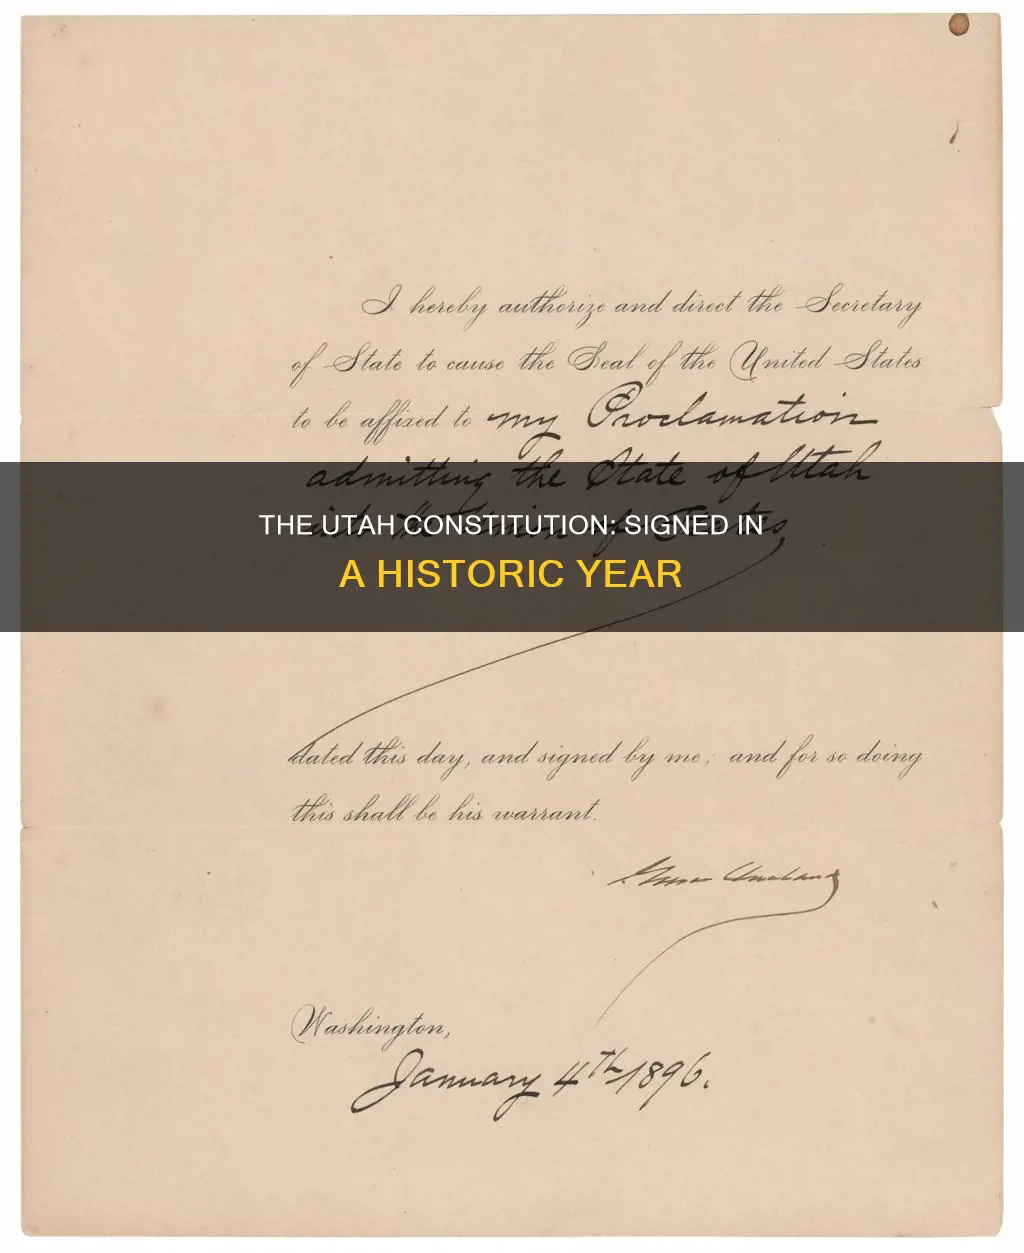 I hereby authorize and direct the Secretary
of State to cause the Seal of the United States
to be affixed to my Proclamation
admitting the State of Utah
into the Union of States,
THE UTAH CONSTITUTION: SIGNED IN
A HISTORIC YEAR
dated this day, and signed by me; and for so doing
this shall be his warrant.
Grover Cleveland
Washington,
January 4th 1896.